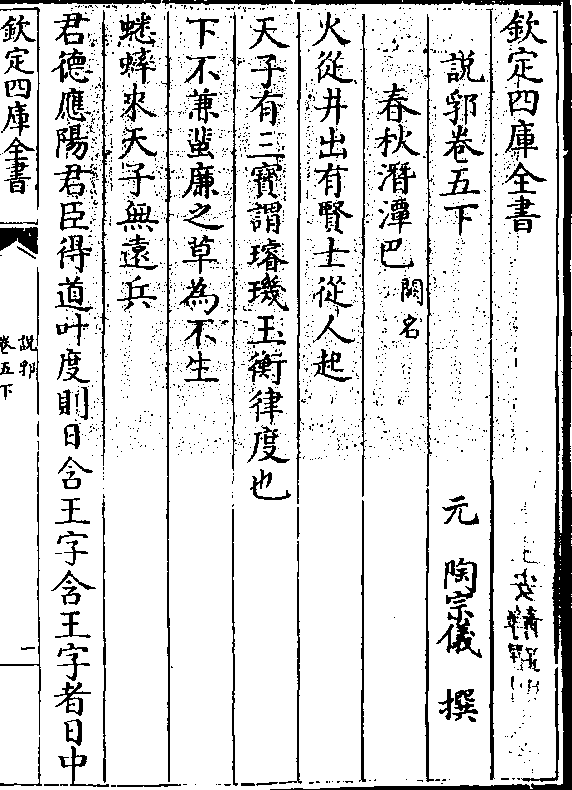 欽定四庫全書
說郛卷五下
元 陶宗儀 撰
春秋潛潭巴 闕名
火從井出有賢士從人起
天子有三寶謂璿璣玉衡律度也
下不兼蜚廉之草為不生
蟋蟀來天子無遠兵
君德應陽君臣得道叶度則日含王字含王字者日中
欽定四庫全書
說郛
卷五下
一